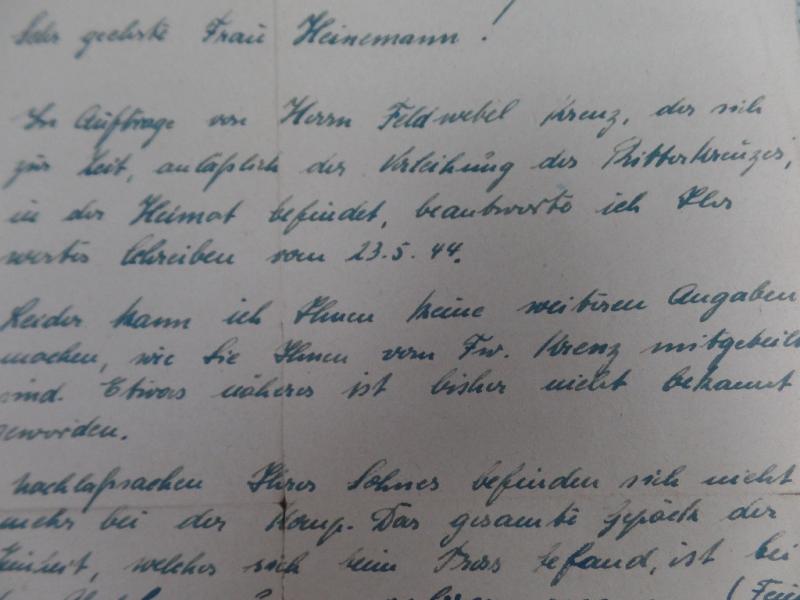 Sehr geehrte Frau Heinemann!
Im Auftrage von Herrn Feldwebel Krenz, der sich
zur Zeit, anläßlich der Verleihung des Ritterkreuzes,
in der Heimat befindet, beantworte ich Ihr
wertes Schreiben vom 23.5.44.
Leider kann ich Ihnen keine weiteren Angaben
machen, wie Sie Ihnen vom Fw. Krenz mitgeteilt
sind. Etwas näheres ist bisher nicht bekannt
geworden.
Nachlaßsachen Ihres Sohnes befinden sich nicht
mehr bei der Komp. Das gesamte Gepäck der
Einheit, welches sich beim Tross befand, ist bei